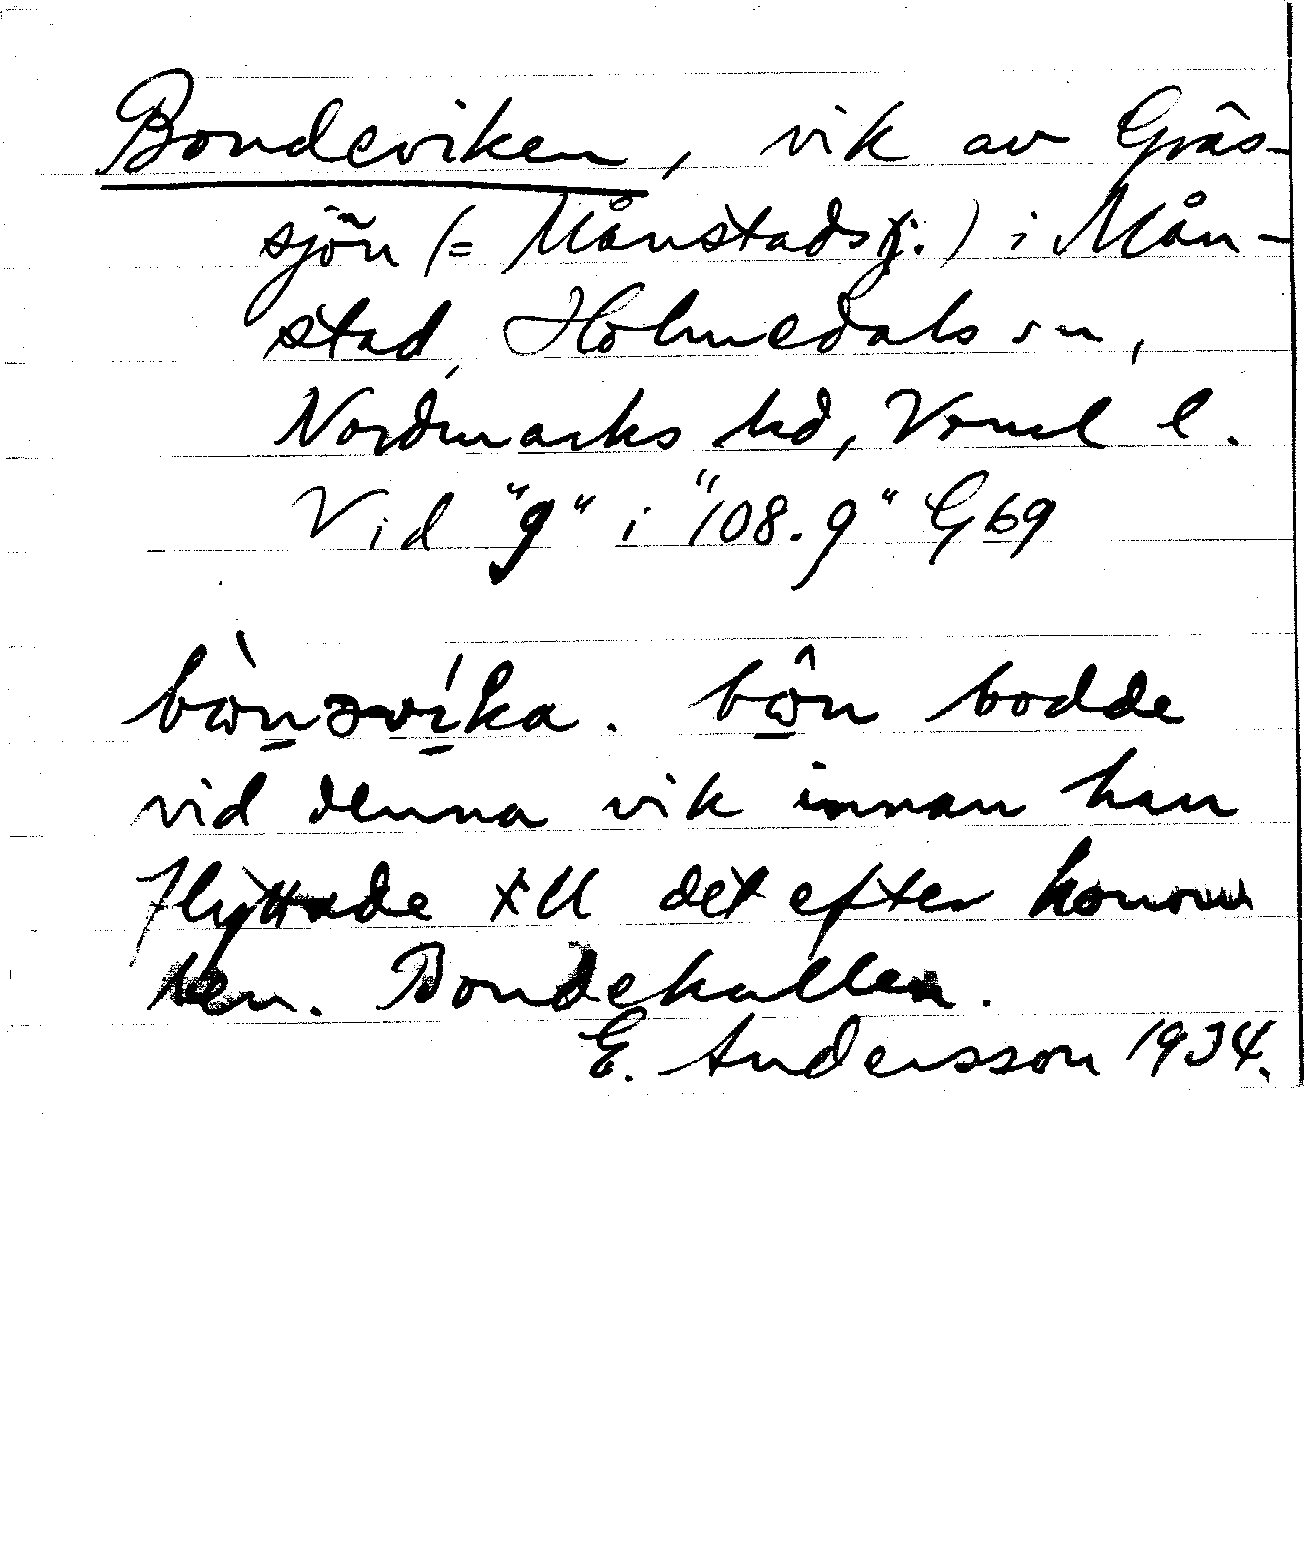 Bondeviken, vik av Gräs-
sjön (= Månstadsj.) i Mån-
stad, Holmedals sn,
Nordmarks hd, Vrml l.
Vid "g" i "108.9" G69
bὼnəvíka. bω̂n bodde
vid denna vik innan han
flyttade till det efter honom
ben. Bondekullen.
E. Andersson 1934.